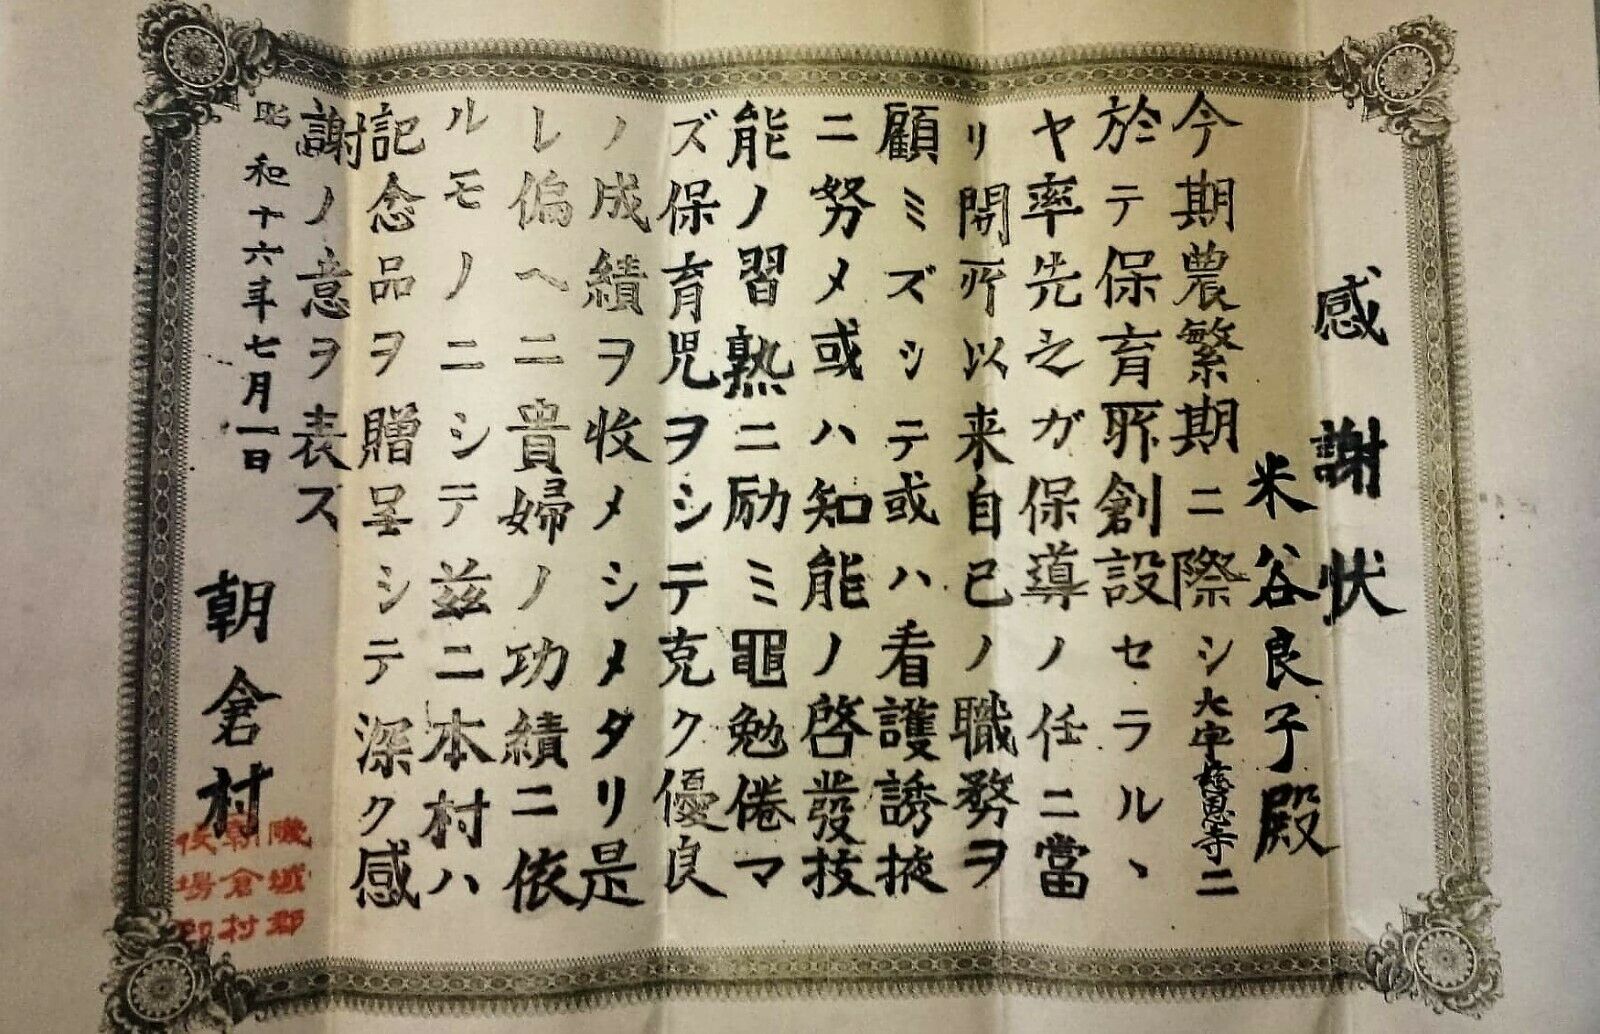 感謝状
米谷良子殿
今期農繁期ニ際シ大字慈恩寺ニ
於テ保育所創設セラルヽ
ヤ率先之ガ保導ノ任ニ當
リ開所以来自己ノ職務ヲ
顧ミズシテ或ハ看護誘掖
ニ努メ或ハ知能ノ啓發技
能ノ習熟ニ励ミ黽勉倦マ
ズ保育児ヲシテ克ク優良
ノ成績ヲ收メシメタリ是
レ偏ヘニ貴婦ノ功績ニ依
ルモノニシテ茲ニ本村ハ
記念品ヲ贈呈シテ深ク感
謝ノ意ヲ表ス
昭和十六年七月一日
朝倉村
磯城郡
朝倉村
役場印